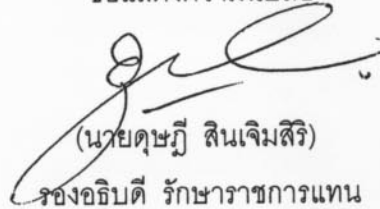 (นายดุษฎี สินเจิมสิริ)
รองอธิบดี รักษาราชการแทน